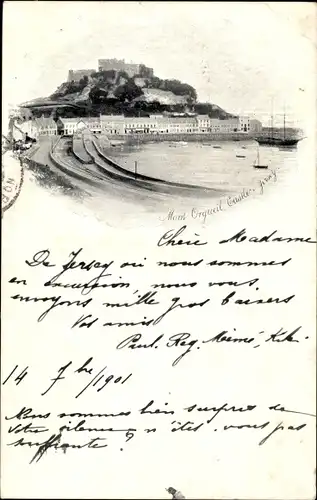 Mont Orgueil Castle, Jersey
Chère Madame
De Jersey où nous sommes
en excursion, nous vous
envoyons mille gros baisers
Vos amis
Paul. Reg. Mimé, Kiki.
14 7bre/1901
Nous sommes bien surpris de
votre silence — n'êtes-vous pas
souffrante?